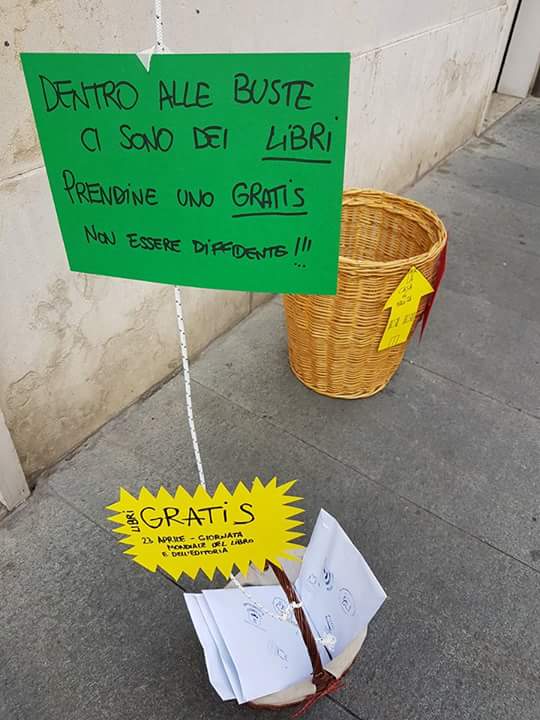 DENTRO ALLE BUSTE
CI SONO DEI LIBRI
PRENDINE UNO GRATIS
NON ESSERE DIFFIDENTE!!!
LIBRI
GRATIS
23 APRILE - GIORNATA
MONDIALE DEL LIBRO
E DELL'EDITORIA